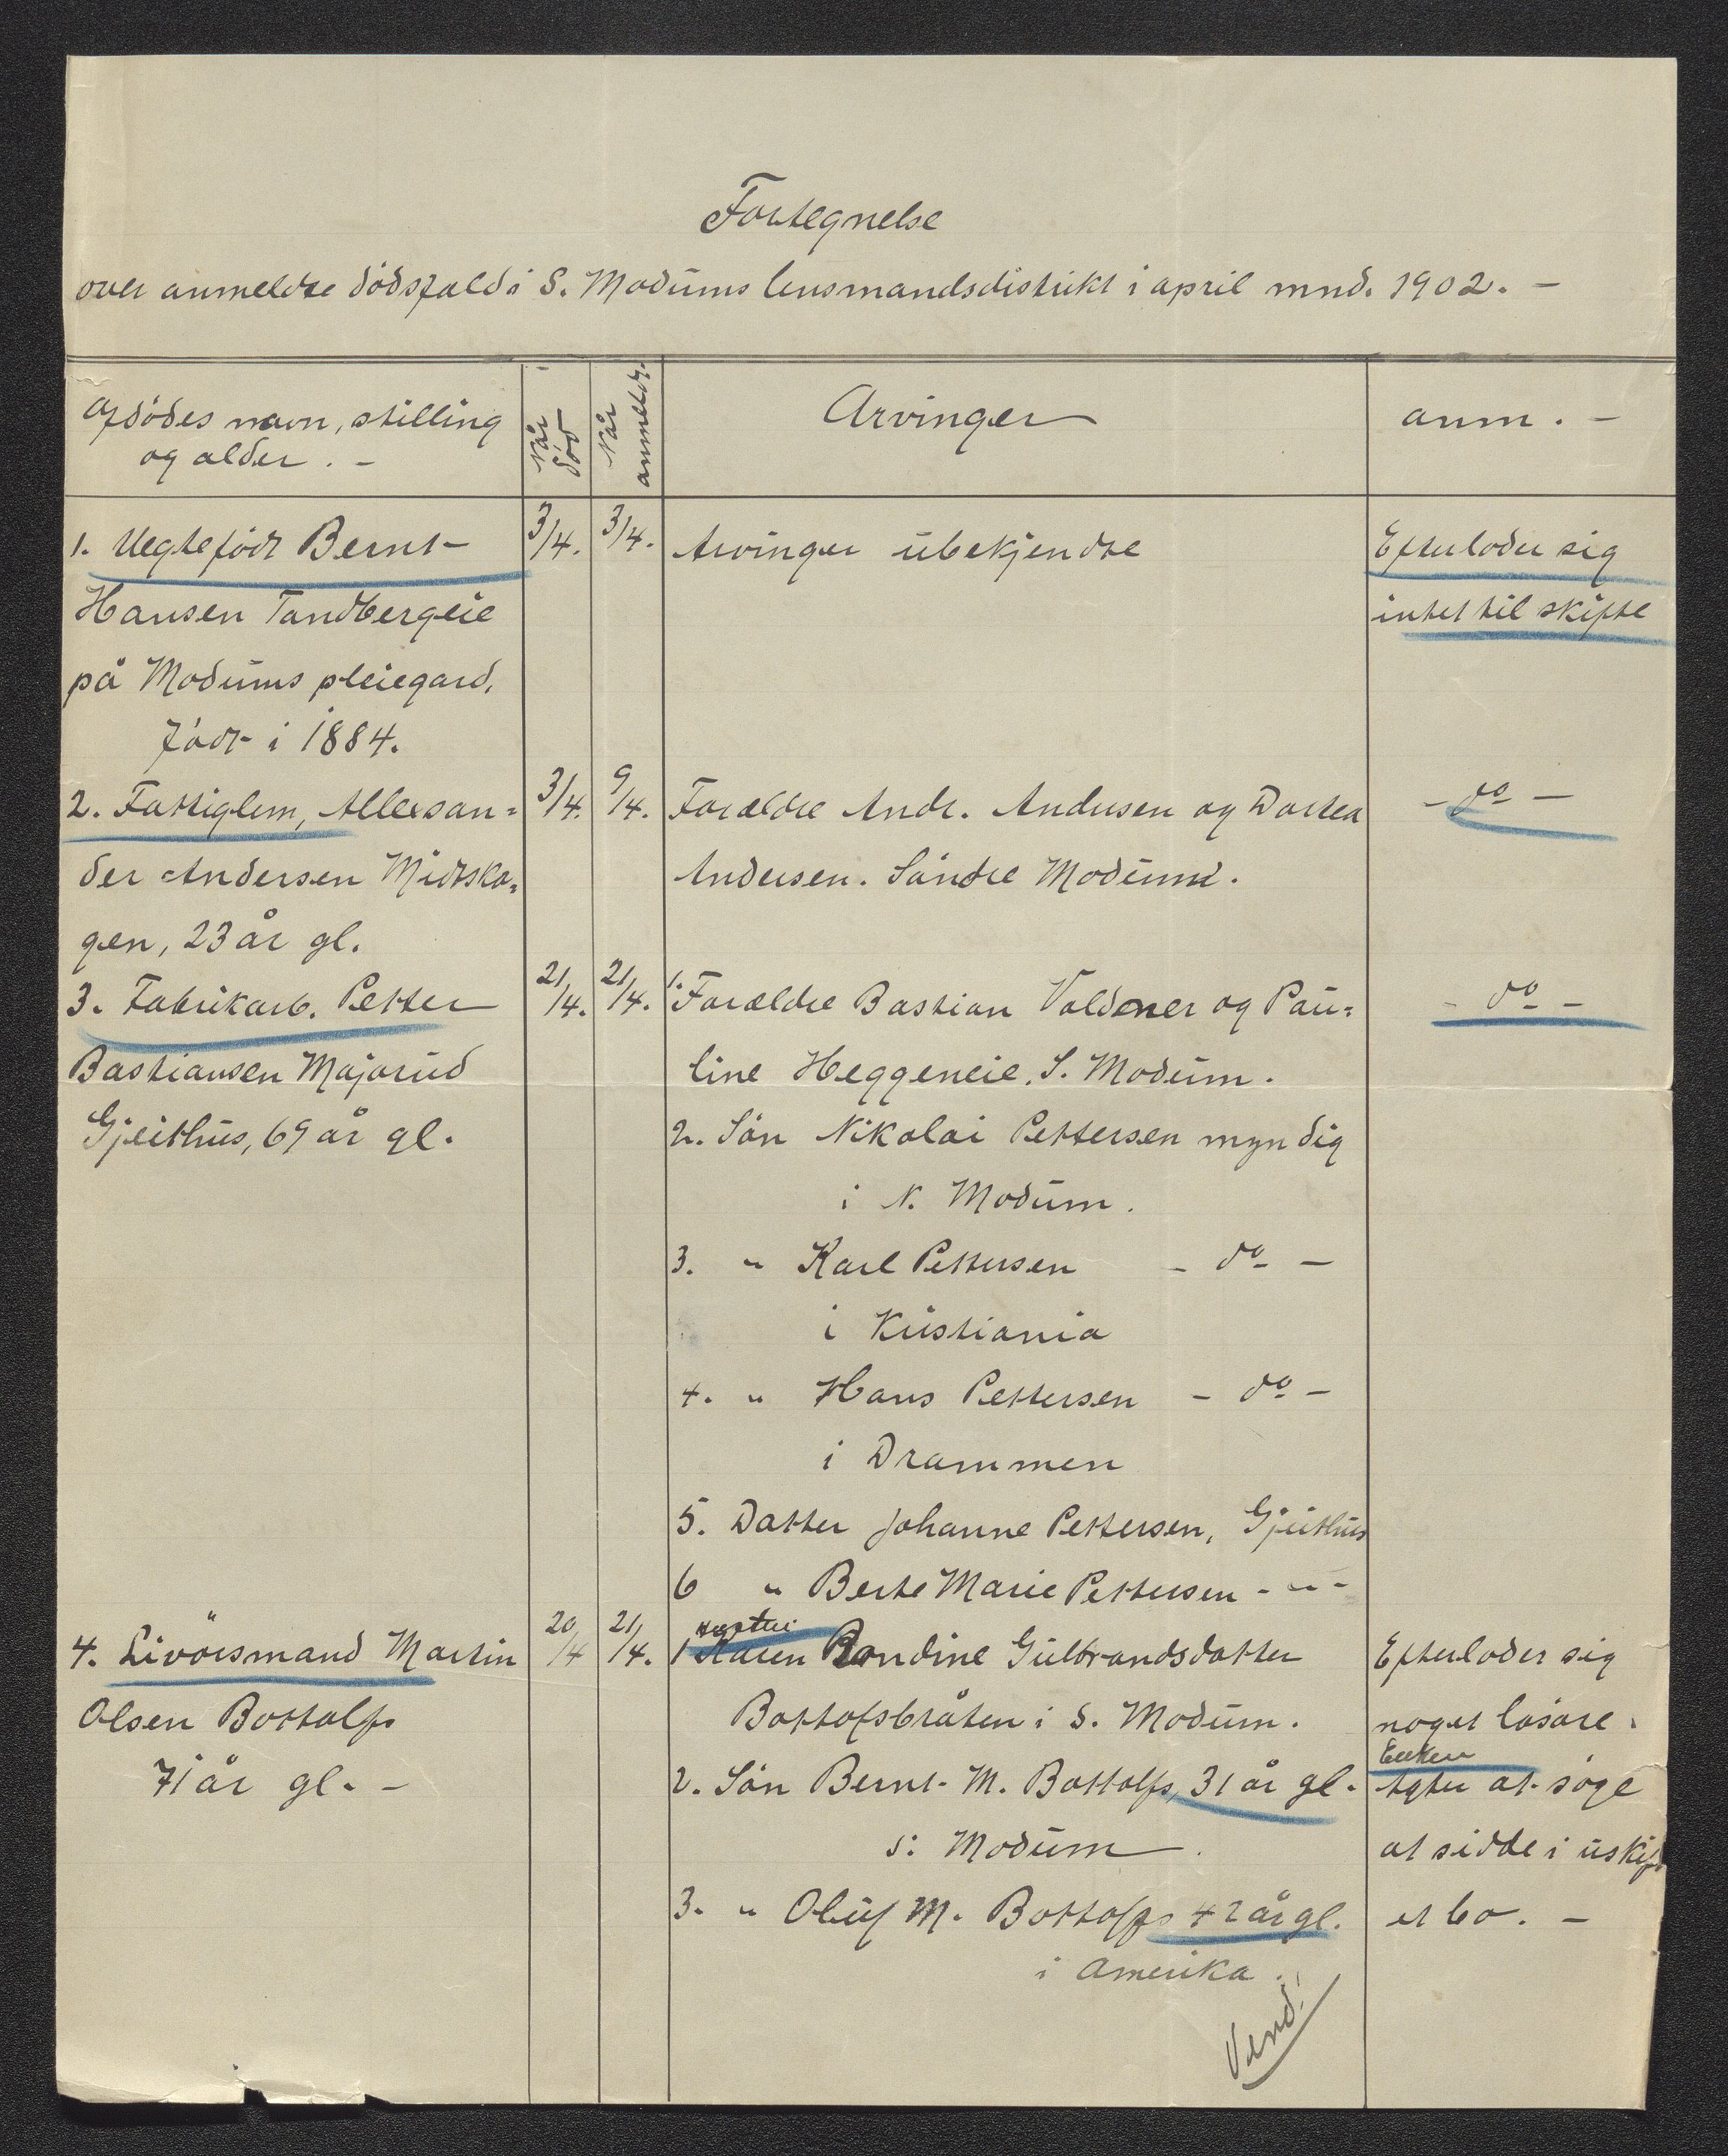 Fortegnelse
over anmeldte dödsfald i S. Modums lensmandsdistrikt i april mnd. 1902. -
Afdödes navn, stilling
og alder. -
Når
död
Når
anmeldt.
Arvinger
anm. -
1. Uegtefödt Bernt
Hansen Tandbergeie
på Modums pleiegard,
födt i 1884.
3/4.
3/4.
Arvinger ubekjendte
Efterlader sig
intet til skifte
2. Fattiglem, Allexsan=
der Andersen Midtsko=
gen, 23 år gl.
3/4.
9/4.
Forældre Andr. Andersen og Dortea
Andersen. Söndre Modum.
- do -
3. Fabrikarb. Petter
Bastiansen Majorud
Gjeithus, 69 år gl.
21/4.
21/4.
1. Forældre Bastian Voldener og Pau=
line Heggeneie, S. Modum.
2. Sön Nikolai Pettersen myndig
i N. Modum.
3. " Karl Pettersen - do -
i Kristiania
4. " Hans Pettersen - do -
i Drammen
5. Datter Johanne Pettersen, Gjeithus
6 " Berte Marie Pettersen - " -
- do -
4. Livörsmand Martin
Olsen Bottolfs
71 år gl. -
20/4
21/4.
1 Karen Randine Gulbrandsdatter
Bottofsbråten i S. Modum.
2. Sön Bernt M. Bottolfs, 31 år gl.
S. Modum.
3. " Oluf M. Bottolfs 42 år gl.
i Amerika.
Efterlader sig
noget lösöre.
Enken
agter at söge
at sidde i uskift
et bo. -
Vend!